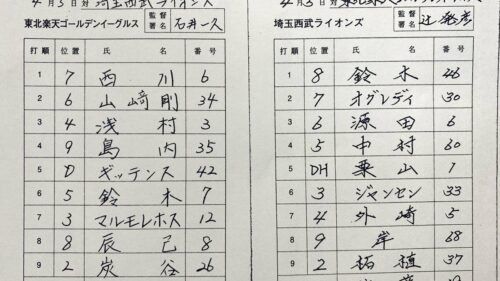 4月5日 対 埼玉西武ライオンズ
東北楽天ゴールデンイーグルス 監督署名 石井一久
打順 位置 氏名 番号
1 7 西川 6
2 6 山﨑剛 34
3 4 浅村 3
4 9 島内 35
5 D ギッテンス 42
6 5 鈴木 7
7 3 マルモレホス 12
8 8 辰己 8
9 2 炭谷 26
4月5日 対
埼玉西武ライオンズ 監督署名 辻発彦
打順 位置 氏名 番号
1 8 鈴木 46
2 7 オグレディ 30
3 6 源田 6
4 5 中村 60
5 DH 栗山 1
6 3 ジャンセン 33
7 4 外崎 5
8 9 岸 68
9 2 柘植 37